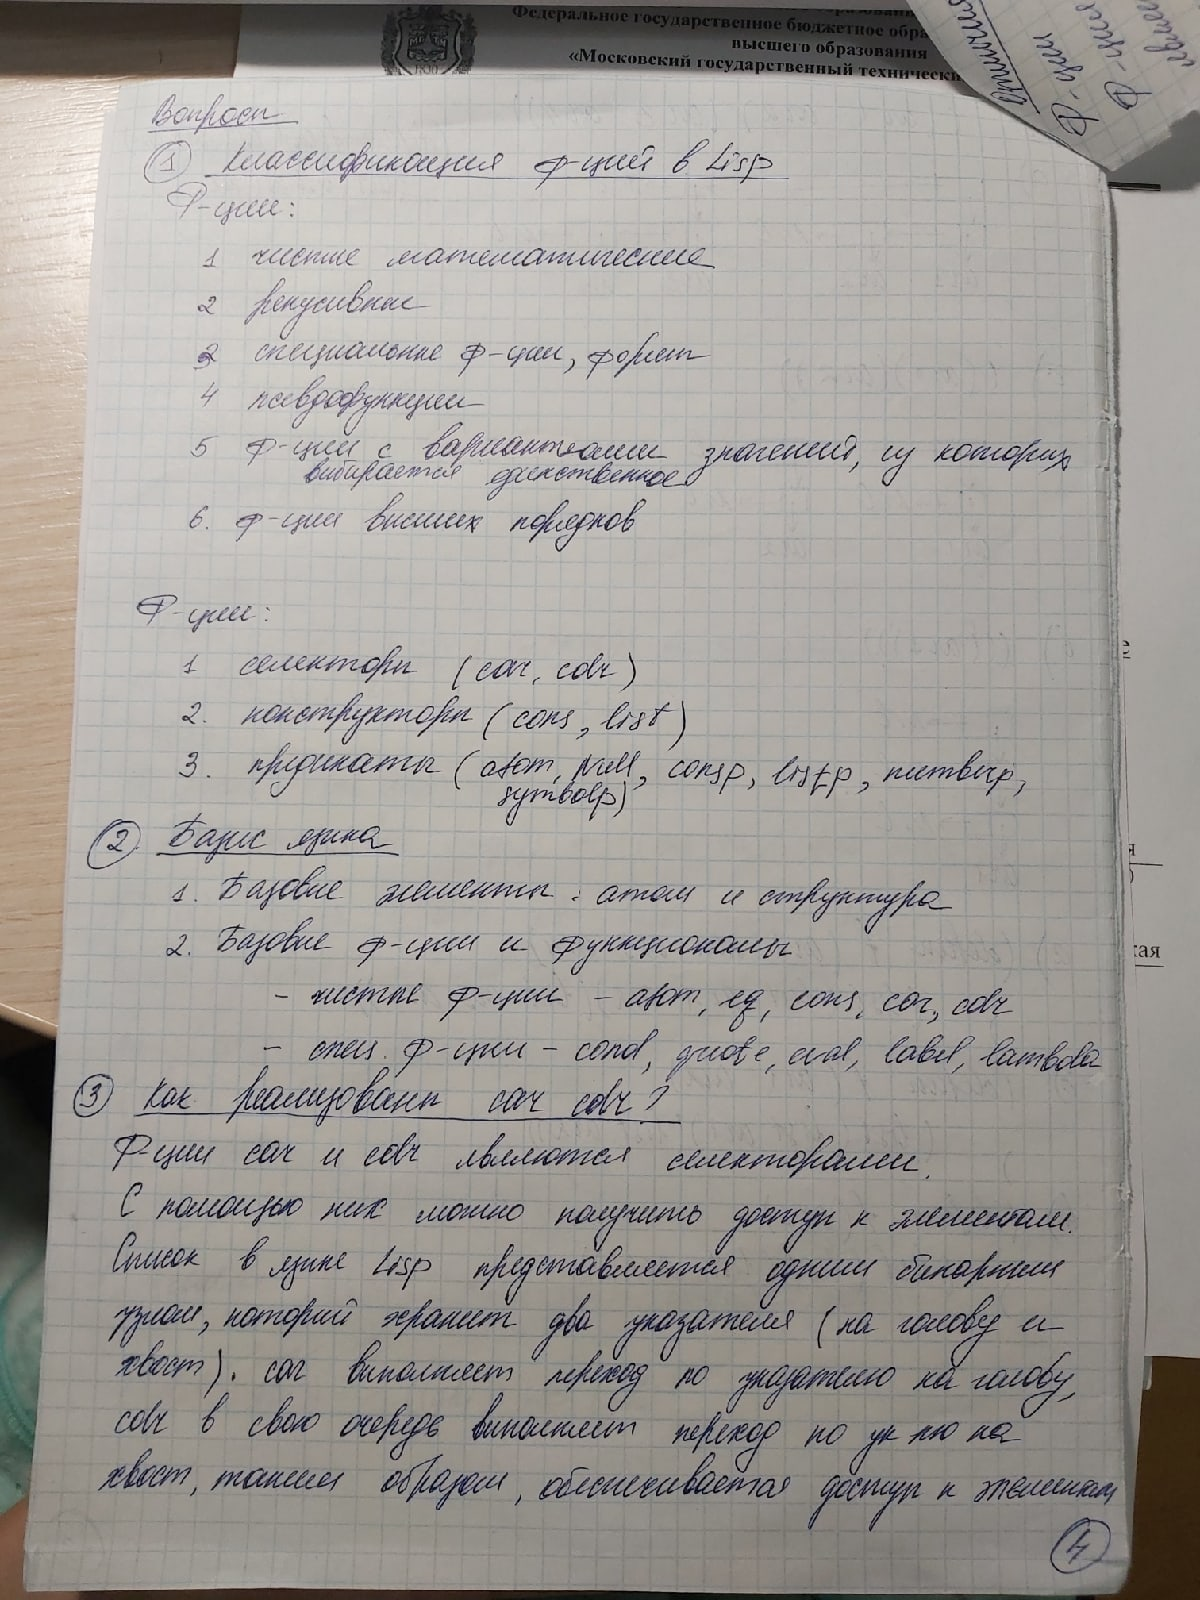 Федеральное государственное бюджетное обра
высшего образования
«Московский государственный технически
Отличия
Ф-ции
Ф-ции
Вопросы
1 Классификация ф-ций в Lisp
Ф-ции:
1 чистые математические
2 рекусивные
3 специальные ф-ции, формы
4 псевдофункции
5 ф-ции с вариантами значений, из которых
выбирается единственное
6. ф-ции высших порядков
Ф-ции:
1 селекторы (car, cdr)
2. конструкторы (cons, list)
3. предикаты (atom, null, consp, listp, numberp,
symbolp)
2 Базис языка
1. Базовые элементы: атом и структура
2. Базовые ф-ции и функционалы
- чистые ф-ции - atom, eq, cons, car, cdr
- спец. ф-ции - cond, quote, eval, label, lambda
3 Как реализованы car cdr?
Ф-ции car и cdr являются селекторами.
С помощью них можно получить доступ к элементам.
Список в языке Lisp представляется одним бинарным
узлом, который хранит два указателя (на голову и
хвост). car выполняет переход по указателю на голову,
cdr в свою очередь выполняет переход по ук-лю на
хвост, таким образом, обеспечивается доступ к элементам
4
кая